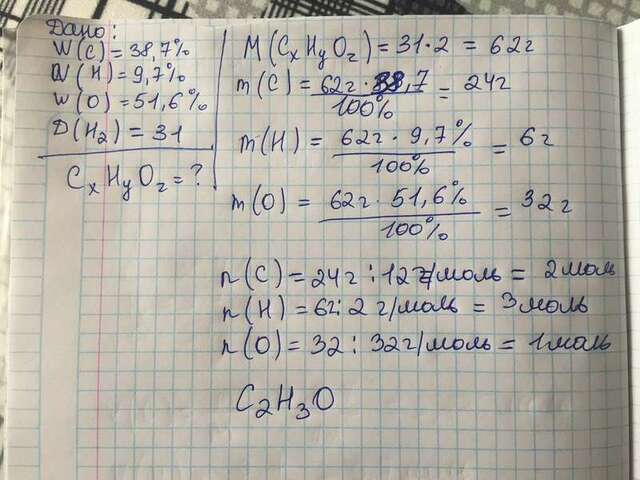 Дано:
W(C)=38,7%
W(H)=9,7%
W(O)=51,6%
D(H₂)=31
CxHyOz=?
M(CxHyOz)=31·2=62г
m(C)=62г·38,7/100%=24г
m(H)=62г·9,7%/100%=6г
m(O)=62г·51,6%/100%=32г
n(C)=24г:12г/моль=2моль
n(H)=6г:2г/моль=3моль
n(O)=32:32г/моль=1моль
C₂H₃O